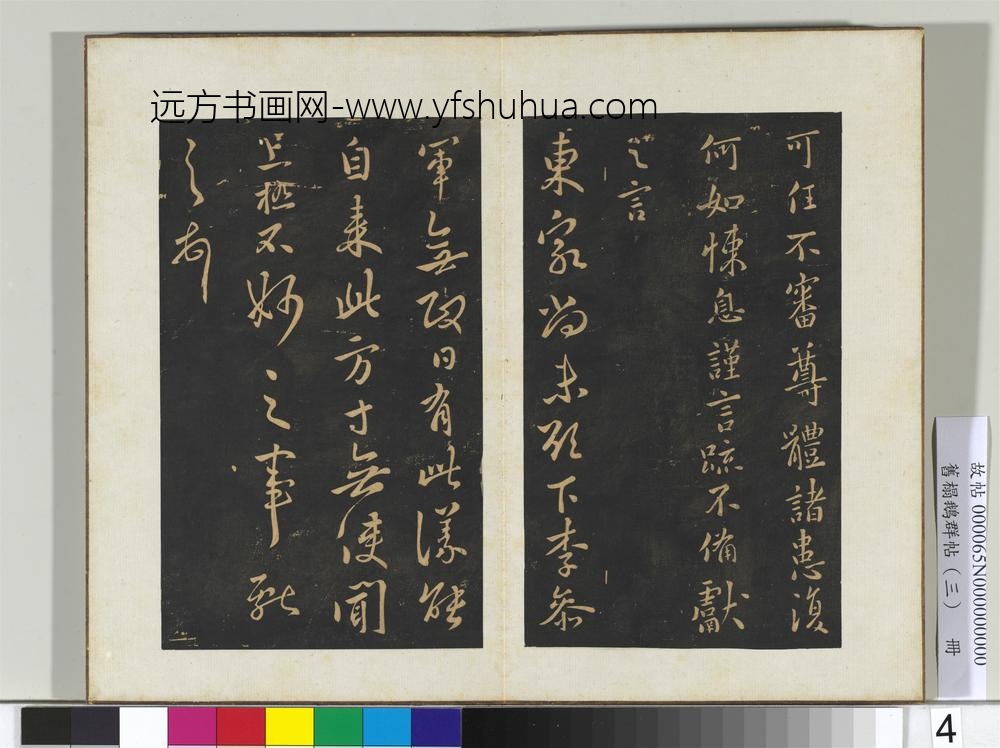 远方书画网-www.yfshuhua.com
可任不審尊體諸患復
何如悚息謹言疏不備獻
之言
東家尚未欲下李參
軍無改日有此議能
自來此方寸無復閒
上極不妙之事獻
之
故帖 000065N000000000
舊搨鵝群帖（三） 冊
4